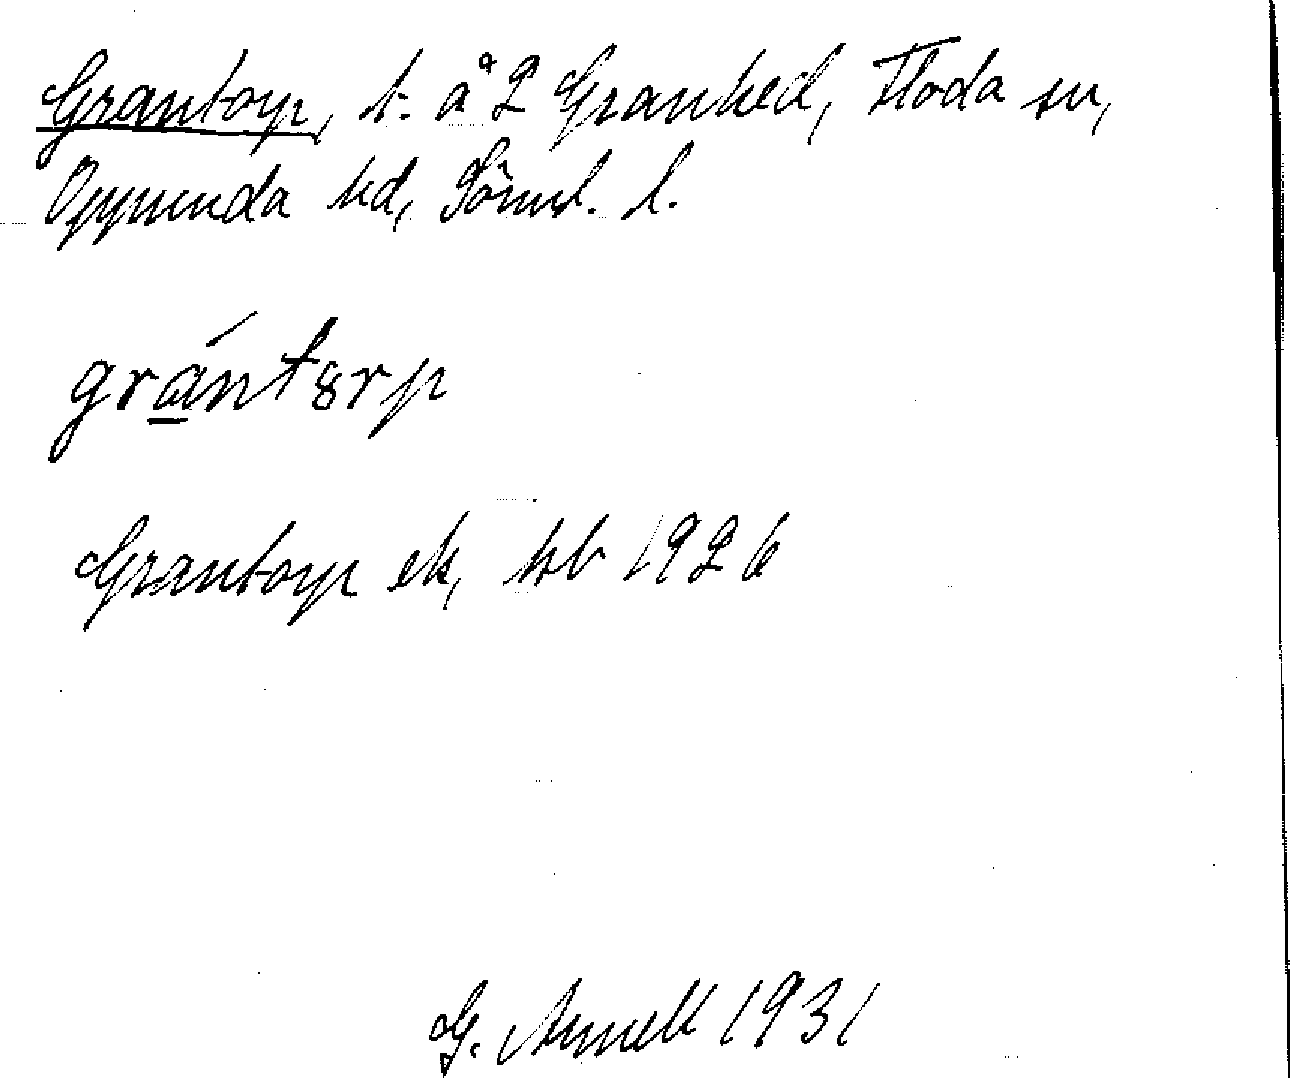 Grantorp, t. å 2 Granhed, Floda sn,
Oppunda hd, Söml. l.
grántørp
Grantorp ek, kb 1926
G. Arnell 1931